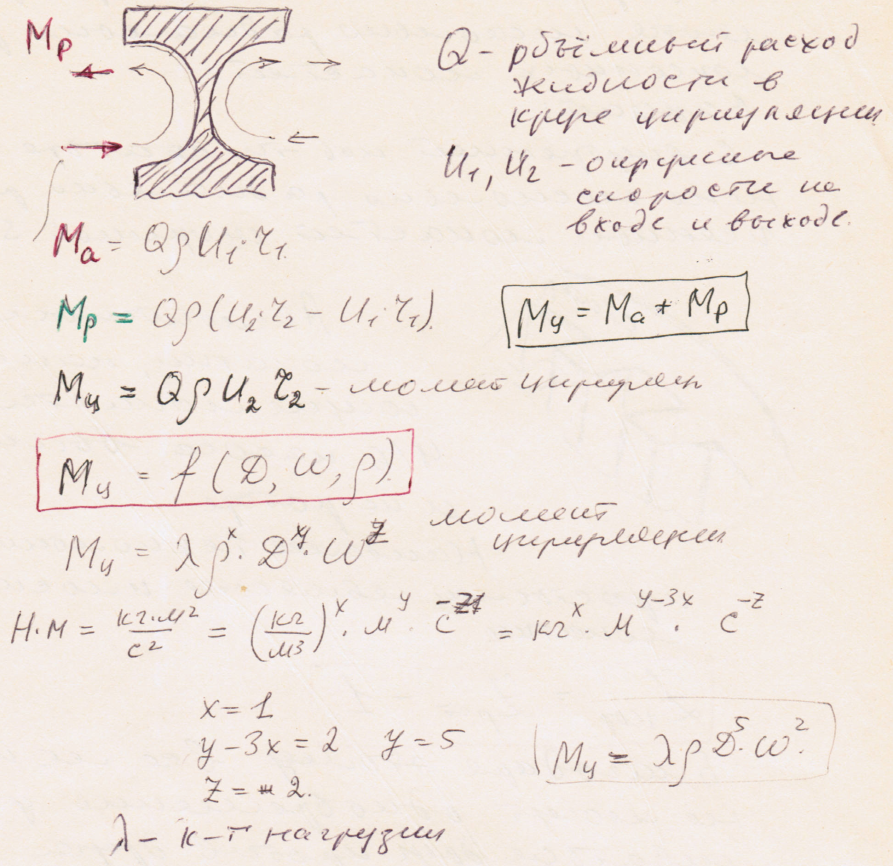 Mр
Q - объёмный расход
жидкости в
круге циркуляции
U₁, U₂ - окружные
скорости на
входе и выходе.
Mа = QρU₁·r₁
Mр = Qρ(U₂·r₂ - U₁·r₁).
Mц = Mа + Mр
Mц = QρU₂r₂ - момент циркуляц
Mц = f(D, ω, ρ)
момент
циркуляции
Mц = λρˣ·Dʸ·ωᶻ
Н·м = кг·м²/с² = (кг/м³)ˣ·мʸ·с⁻ᶻ = кгˣ·м^(y-3x)·с⁻ᶻ
x = 1
y-3x = 2 y = 5
z = 2.
Mц = λρD⁵·ω².
λ - к-т нагрузки